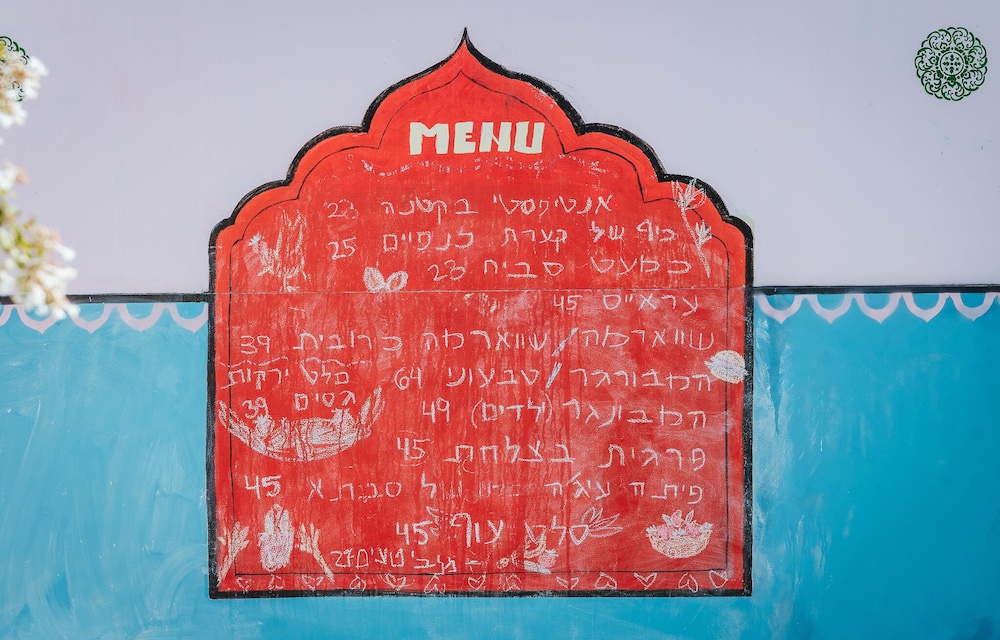 MENU
אנטיפסטי בקטנה 23
כיף של קערת כנפיים 25
כמעט סביח 23
עראייס 45
שווארמה/שווארמה כרובית 39
המבורגר/טבעוני 64
סלט ירקות
גסים 39
המבינגר (ילדים) 49
פרגית בצלחת 45
פיתה עיג'ה של סבתא 45
סלט עוף 45